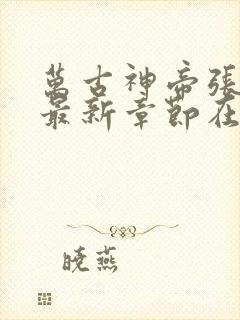 萬古神帝張
最新章節在
曉燕